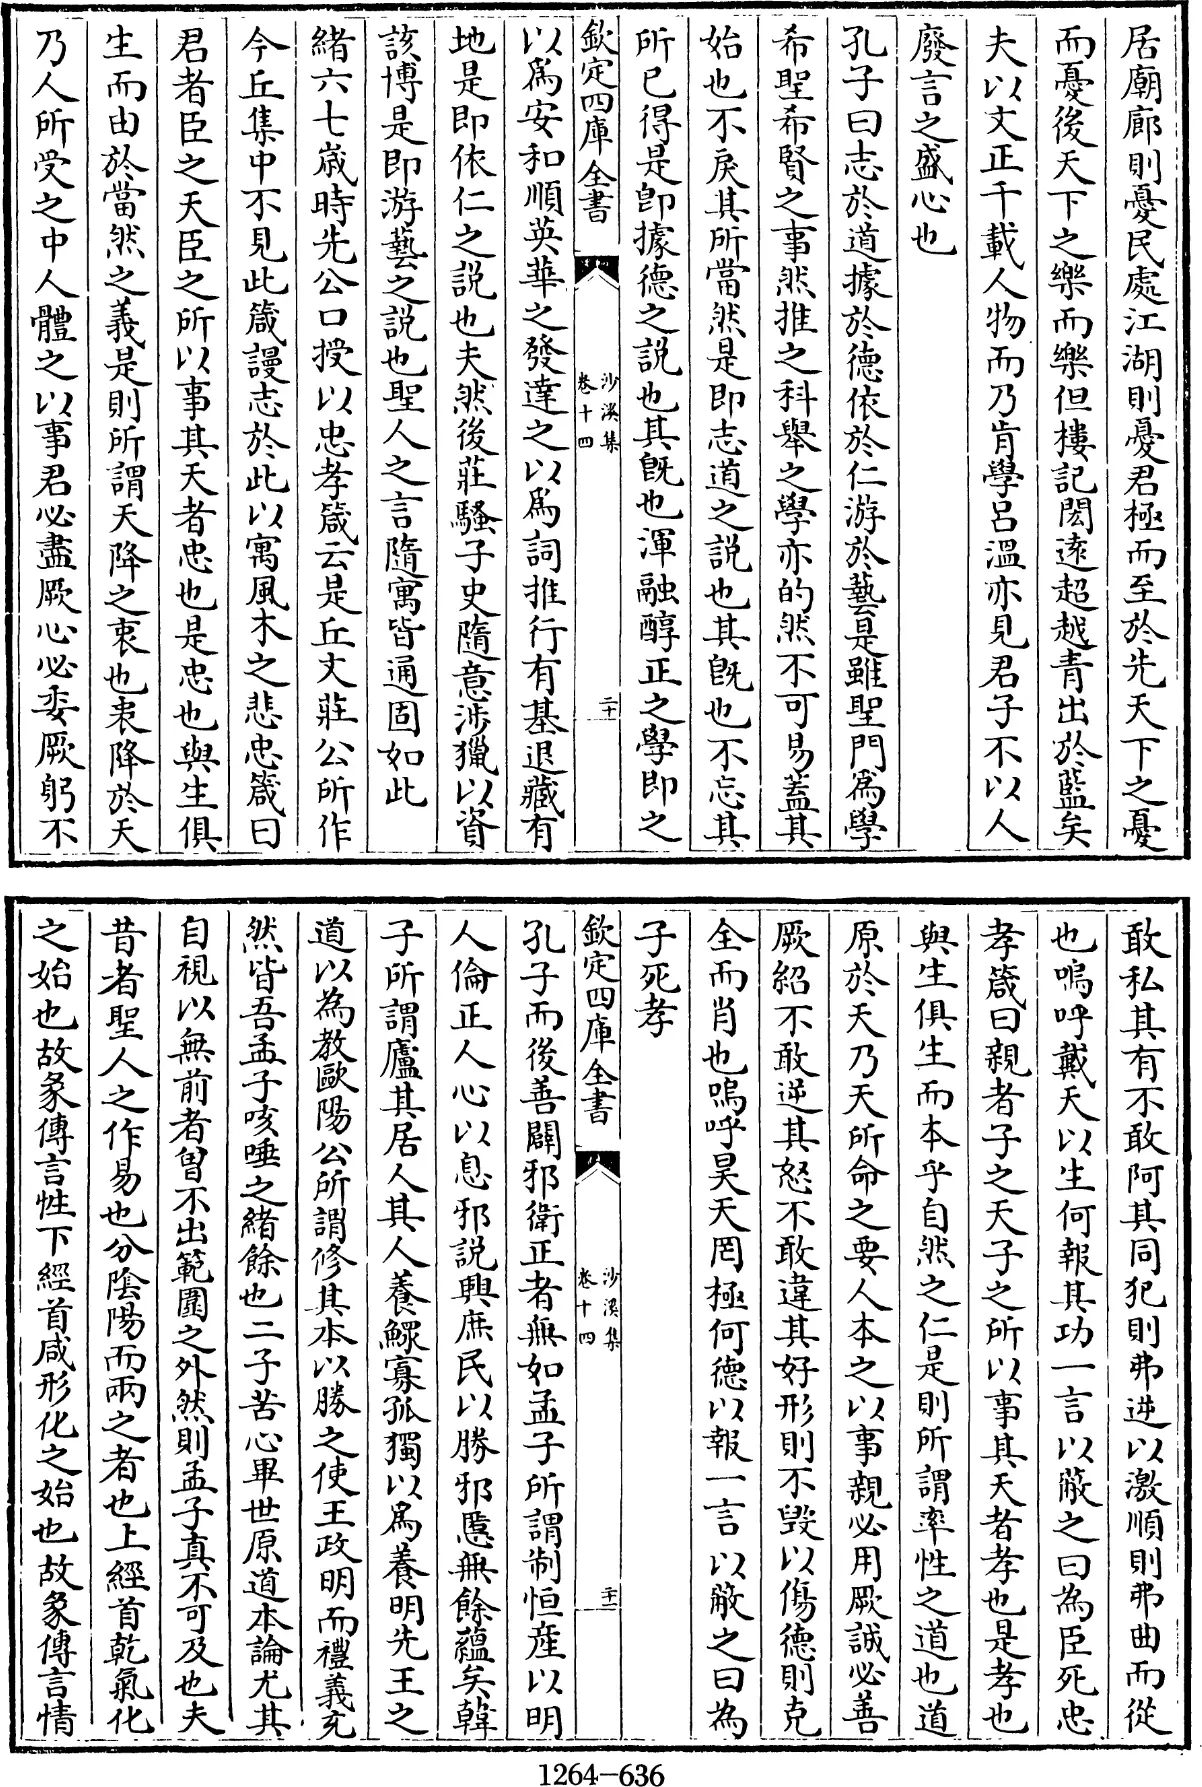 居廟廊則憂民處江湖則憂君極而至於先天下之憂
而憂後天下之樂而樂但樓記閎逺超越青出於藍矣
夫以文正千載人物而乃肯學呂溫亦見君子不以人
廢言之盛心也
孔子曰志於道據於德依於仁游於藝是雖聖門爲學
希聖希賢之事然推之科舉之學亦的然不可易蓋其
始也不戾其所當然是即志道之説也其既也不忘其
所已得是卽據德之説也其旣也渾融醇正之學即之
欽定四庫全書
沙溪集
卷十四
二十
以爲安和順英華之發達之以爲詞推行有基退藏有
地是即依仁之説也夫然後莊騷子史隨意涉獵以資
該博是即游藝之説也聖人之言隨寓皆通固如此
緒六七嵗時先公口授以忠孝箴云是丘文莊公所作
今丘集中不見此箴謾志於此以寓風木之悲忠箴曰
君者臣之天臣之所以事其天者忠也是忠也與生俱
生而由於當然之義是則所謂天降之衷也衷降於天
乃人所受之中人體之以事君必盡厥心必委厥躬不
敢私其有不敢阿其同犯則弗逆以激順則弗曲而從
也嗚呼戴天以生何報其功一言以蔽之曰為臣死忠
孝箴曰親者子之天子之所以事其天者孝也是孝也
與生俱生而本乎自然之仁是則所謂率性之道也道
原於天乃天所命之要人本之以事親必用厥誠必善
厥紹不敢逆其怒不敢違其好形則不毀以傷德則克
全而肖也嗚呼昊天罔極何德以報一言以蔽之曰為
子死孝
欽定四庫全書
沙溪集
卷十四
二十一
孔子而後善闢邪衛正者無如孟子所謂制恒産以明
人倫正人心以息邪説興庶民以勝邪慝無餘蘊矣韓
子所謂廬其居人其人養鰥寡孤獨以爲養明先王之
道以為教歐陽公所謂修其本以勝之使王政明而禮義充
然皆吾孟子咳唾之緒餘也二子苦心畢世原道本論尤其
自視以無前者曽不出範圍之外然則孟子真不可及也夫
昔者聖人之作易也分陰陽而兩之者也上經首乾氣化
之始也故彖傳言性下經首咸形化之始也故彖傳言情
1264-636